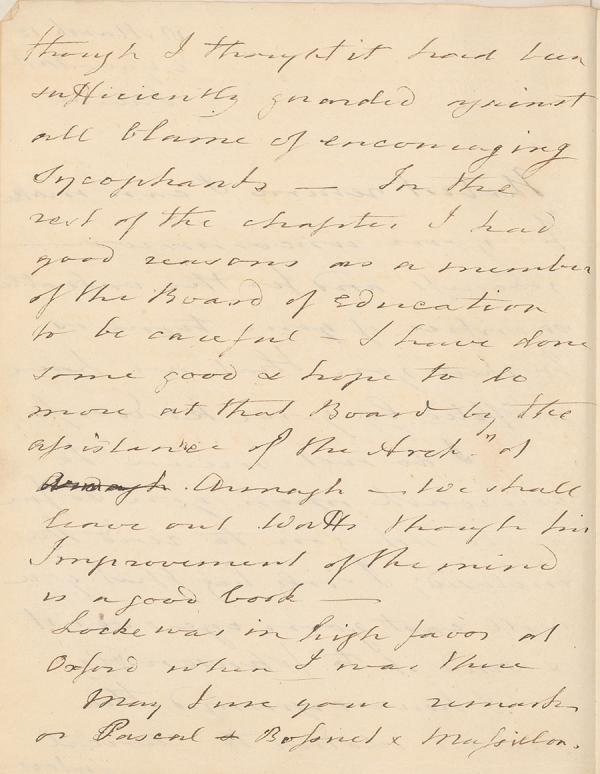 though I thought it had been
sufficiently guarded against
all blame of encouraging
Sycophants — In the
rest of the chapter I had
good reasons as a member
of the Board of Education
to be careful – I have done
some good & hope to do
more at that Board by the
assistance of the Arch.n of
Armagh. Armagh — We shall
leave out Watts though his
Improvement of the mind
is a good book —
Locke was in high favor at
Oxford when I was there
May I use your remarks
on Pascal & Bossuet & Massillon.